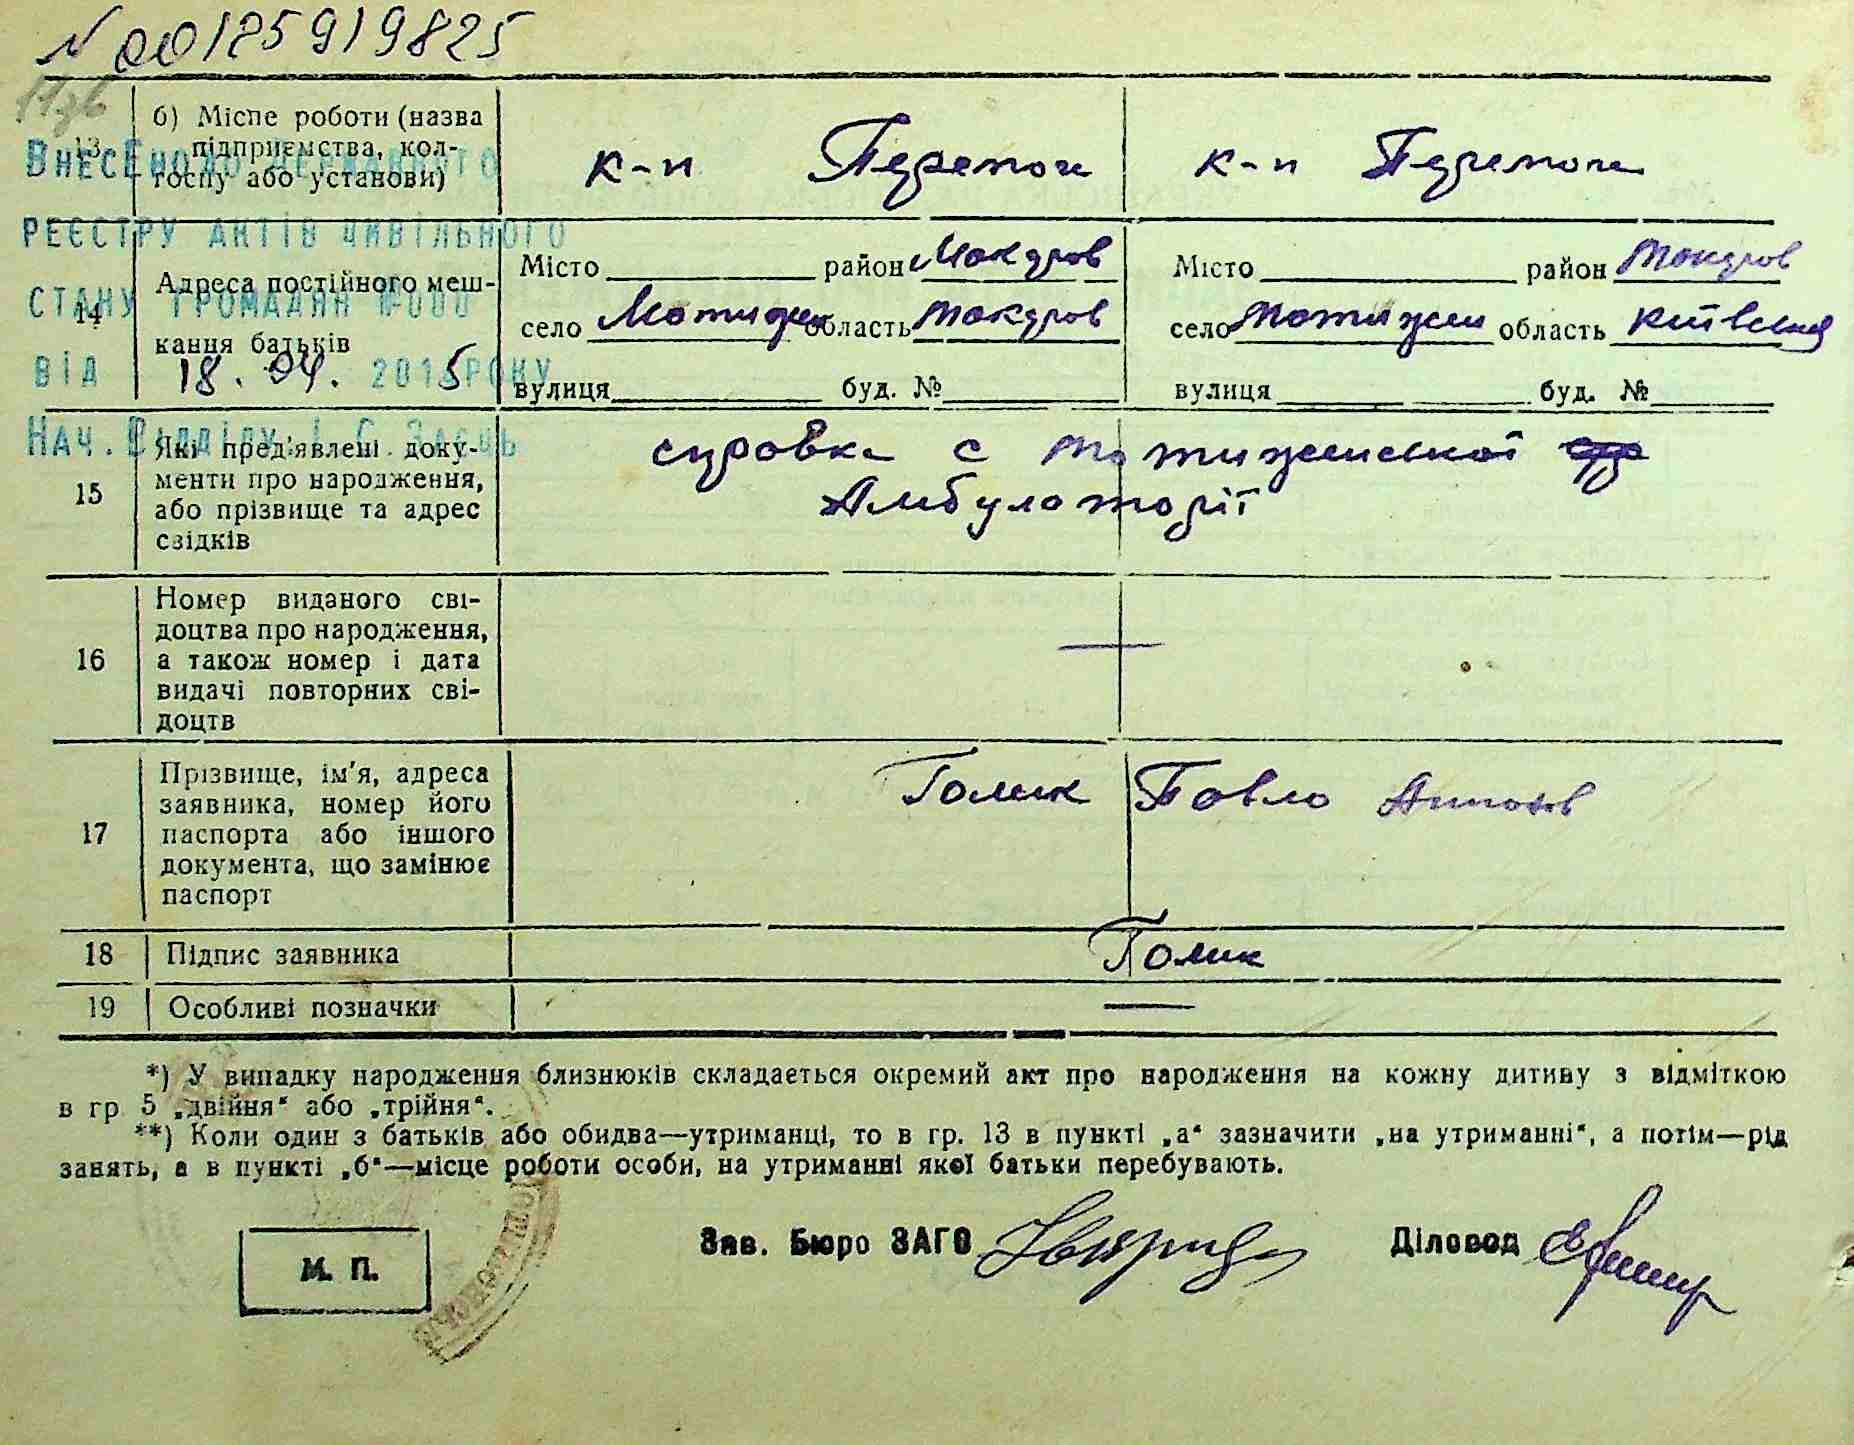 N 00125919825
13
б) Місце роботи (назва
підприємства, кол-
госпу або установи)
к-п Перемоги
к-п Перемоги
ВНЕСЕНО ДО ДЕРЖАВНОГО
РЕЄСТРУ АКТІВ ЦИВІЛЬНОГО
СТАНУ ГРОМАДЯН
ВІД 18. 04. 2015 РОКУ
НАЧ. ВІДДІЛУ І. С. ЗАЄЦЬ
14
Адреса постійного меш-
кання батьків
Місто район Макаров
село Мотижин область Макаров
вулиця буд. №
Місто район Макаров
село Мотижин область Київська
вулиця буд. №
15
Які пред'явлені доку-
менти про народження,
або прізвище та адрес
свідків
справка с Мотижинської
Амбулаторії
16
Номер виданого сві-
доцтва про народження,
а також номер і дата
видачі повторних сві-
доцтв
17
Прізвище, ім'я, адреса
заявника, номер його
паспорта або іншого
документа, що замінює
паспорт
Голик Павло
18
Підпис заявника
Голик
19
Особливі позначки
—
*) У випадку народження близнюків складається окремий акт про народження на кожну дитину з відміткою
в гр. 5 „двійня“ або „трійня“.
**) Коли один з батьків або обидва—утриманці, то в гр. 13 в пункті „а“ зазначити „на утриманні“, а потім—рід
занять, а в пункті „б“—місце роботи особи, на утриманні якої батьки перебувають.
М. П.
Зав. Бюро ЗАГС
Діловод